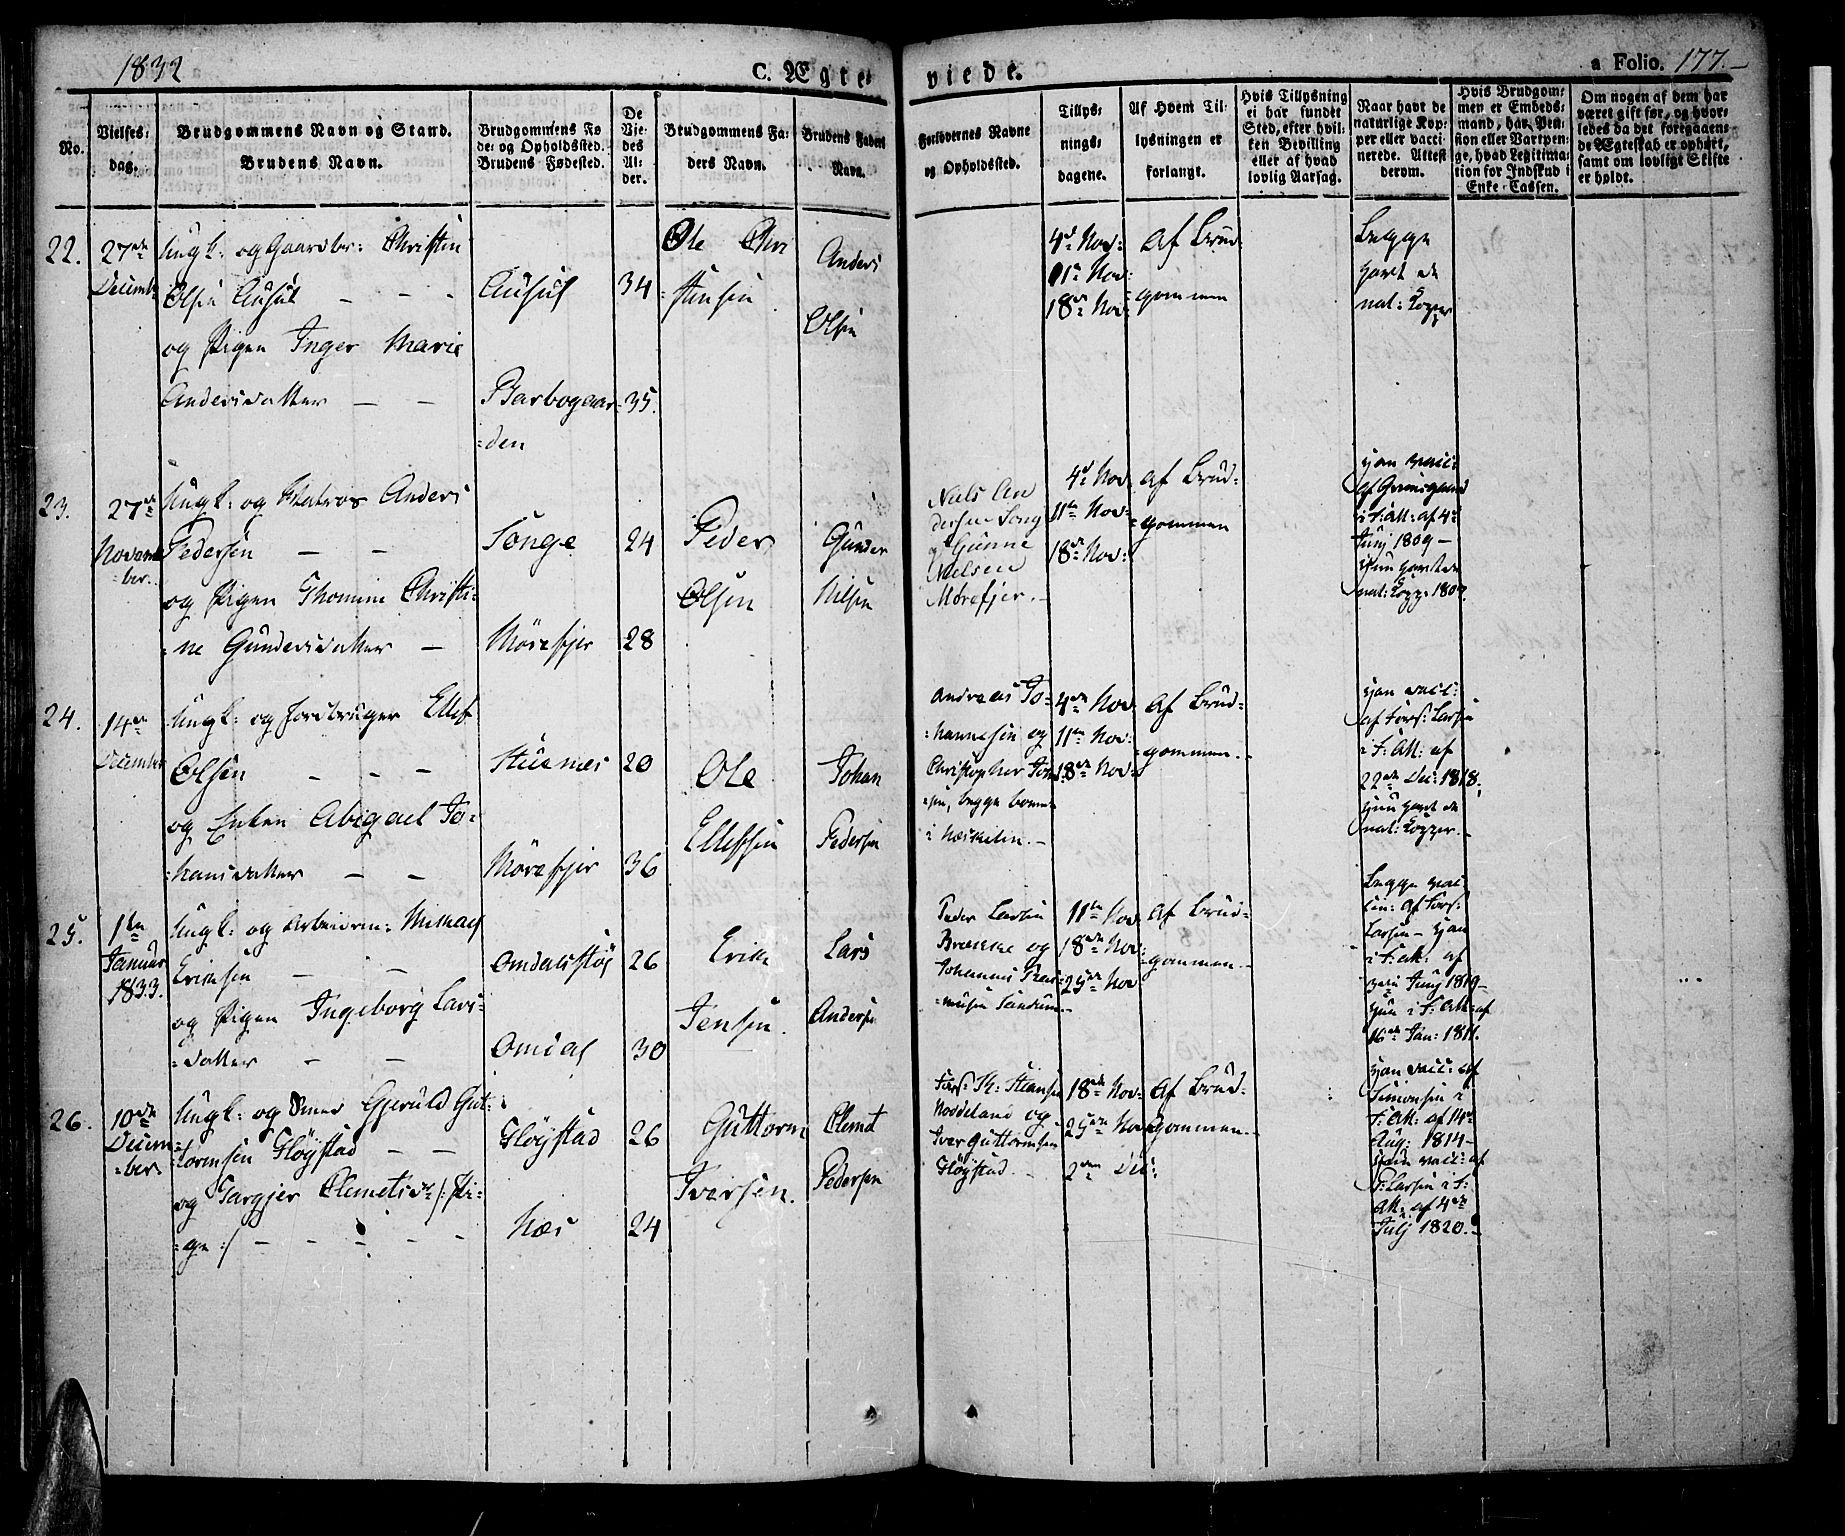 1832
C. Ægte-
viede.
a Folio. 177.
No.
Vielses-
dag.
Brudgommens Navn og Stand.
Brudens Navn.
Brudgommens Fø
de- og Opholdssted.
Brudens Fødested.
De
Vie-
des
Al-
der.
Brudgommens Fa-
ders Navn.
Brudens Faders
Navn.
Forlovernes Navne
og Opholdssted.
Tillys-
nings-
dagene.
Af Hvem Til-
lysningen er
forlangt.
Hvis Tillysning
ei har fundet
Sted, efter hvil-
ken Bevilling
eller af hvad
lovlig Aarsag.
Naar havt de
naturlige Kop-
per eller vacci-
nerede. Attest
derom.
Hvis Brudgom-
men er Embeds-
mand, har Pen-
sion eller Vartpen-
ge, hvad Legitima-
tion for Indskud i
Enke-Cassen.
Om nogen af dem har
været gift før, og hvor-
ledes da det foregaaen-
de Ægteskab er ophørt,
samt om lovligt Skifte
er holdt.
22.
27de
Decembr
Ungk: og Gaardbr: Christen
Olsen Ausut
og Pigen Inger Marie
Andersdatter
34
Barbogaar-
-den
35.
Ole Chri
stensen
Anders
Olsen
4de Nov:
11te Nov:
18de Nov:
af Brud-
-gommen
Begge
havt de
nat: Kopper
23.
27de
Novem-
-ber.
Ungk: og Matros Anders
Pedersen
og Pigen Thomine Christi-
-ne Gundersdatter
Songe
24
Mørefjer
28
Peder
Olsen
Gunder
Nilsen
Niels An
dersen Song
og Gunne
Nielsen
Mørefjer.
4de Nov
11te Nov:
18de Nov:
af Brud-
-gommen
Han vacc:
af
i F: Att: af 4de
Junj 1809 -
Hun havt de
nat: Kopp:
24.
14de
Decembr
Ungk: og Jordbruger Ellef
Olsen
og Enken Abigael Jo-
-hansdatter
Stuenes
20
Mørefjer
36
Ole
Ellefsen
Johan
Pedersen
Andreas Jo-
-hannesen og
Christopher
-sen, begge boende
i Næskilen.
4de Nov
11te Nov:
18de Nov:
af Brud-
-gommen.
Han vacc:
af Larsen
i F: Att: af
22de Dec: 1818,
Hun havt de
nat: Kopper.
25.
1ste
Januar
1833.
Ungk: og Arbeidsm:
Eriksen
og Pigen Ingeborg Lars-
-datter
26
Omdal
30
Erik
Jensen.
Lars
Anders:
Peder Larsen
Brække og
Johannes
11te Nov
18de Nov:
25de Nov
af Brud-
-gommen.
Begge vac-
cin: af
Larsen - Han
i F: Att: af
Junj 1819 -
Hun i F: Att: af
16de Jan: 1811.
26.
10de
Decem-
-ber
Ungk: og Gjeruld Gut-
-tormsen Fløystad
og Targjer Clemetsd: /: Pi-
-ge :/
Fløystad
26
Næs
24
Guttorm
Iversen.
Clemet
Pedersen
Nordeland og
Iver Guttormsen
Fløystad
18de Nov:
25de Nov:
2den Dec:
af Brud-
-gommen.
Han vacc: af
Simonsen i
F: Att: af 14de
Aug: 1814 -
Hun vacc: af
Larsen i F:
Att: af 4de
Julj 1820.